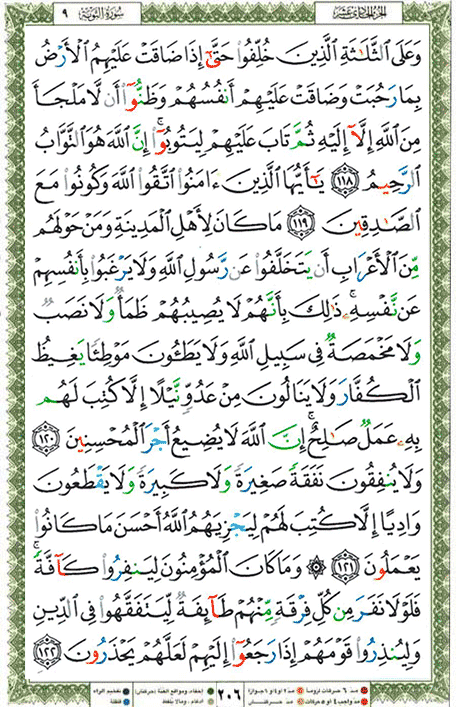 الجزء الحادي عشر سورة التوبة ٩
وَعَلَى ٱلثَّلَٰثَةِ ٱلَّذِينَ خُلِّفُوا۟ حَتَّىٰٓ إِذَا ضَاقَتْ عَلَيْهِمُ ٱلْأَرْضُ
بِمَا رَحُبَتْ وَضَاقَتْ عَلَيْهِمْ أَنفُسُهُمْ وَظَنُّوٓا۟ أَن لَّا مَلْجَأَ
مِنَ ٱللَّهِ إِلَّآ إِلَيْهِ ثُمَّ تَابَ عَلَيْهِمْ لِيَتُوبُوٓا۟ ۚ إِنَّ ٱللَّهَ هُوَ ٱلتَّوَّابُ
ٱلرَّحِيمُ ١١٨ يَٰٓأَيُّهَا ٱلَّذِينَ ءَامَنُوا۟ ٱتَّقُوا۟ ٱللَّهَ وَكُونُوا۟ مَعَ
ٱلصَّٰدِقِينَ ١١٩ مَا كَانَ لِأَهْلِ ٱلْمَدِينَةِ وَمَنْ حَوْلَهُم
مِّنَ ٱلْأَعْرَابِ أَن يَتَخَلَّفُوا۟ عَن رَّسُولِ ٱللَّهِ وَلَا يَرْغَبُوا۟ بِأَنفُسِهِمْ
عَن نَّفْسِهِۦ ۚ ذَٰلِكَ بِأَنَّهُمْ لَا يُصِيبُهُمْ ظَمَأٌ وَلَا نَصَبٌ
وَلَا مَخْمَصَةٌ فِى سَبِيلِ ٱللَّهِ وَلَا يَطَـُٔونَ مَوْطِئًا يَغِيظُ
ٱلْكُفَّارَ وَلَا يَنَالُونَ مِنْ عَدُوٍّ نَّيْلًا إِلَّا كُتِبَ لَهُم
بِهِۦ عَمَلٌ صَٰلِحٌ ۚ إِنَّ ٱللَّهَ لَا يُضِيعُ أَجْرَ ٱلْمُحْسِنِينَ ١٢٠
وَلَا يُنفِقُونَ نَفَقَةً صَغِيرَةً وَلَا كَبِيرَةً وَلَا يَقْطَعُونَ
وَادِيًا إِلَّا كُتِبَ لَهُمْ لِيَجْزِيَهُمُ ٱللَّهُ أَحْسَنَ مَا كَانُوا۟
يَعْمَلُونَ ١٢١ ۞ وَمَا كَانَ ٱلْمُؤْمِنُونَ لِيَنفِرُوا۟ كَآفَّةً ۚ
فَلَوْلَا نَفَرَ مِن كُلِّ فِرْقَةٍ مِّنْهُمْ طَآئِفَةٌ لِّيَتَفَقَّهُوا۟ فِى ٱلدِّينِ
وَلِيُنذِرُوا۟ قَوْمَهُمْ إِذَا رَجَعُوٓا۟ إِلَيْهِمْ لَعَلَّهُمْ يَحْذَرُونَ ١٢٢
مد ٦ حركات لزوما مد ٢ او ٤ او ٦ جوازا ٢٠٦ إخفاء، ومواقع الغنة (حركتان) تفخيم الراء
مد واجب ٤ او ٥ حركات مد حركتان إدغام، وما لا يلفظ قلقلة